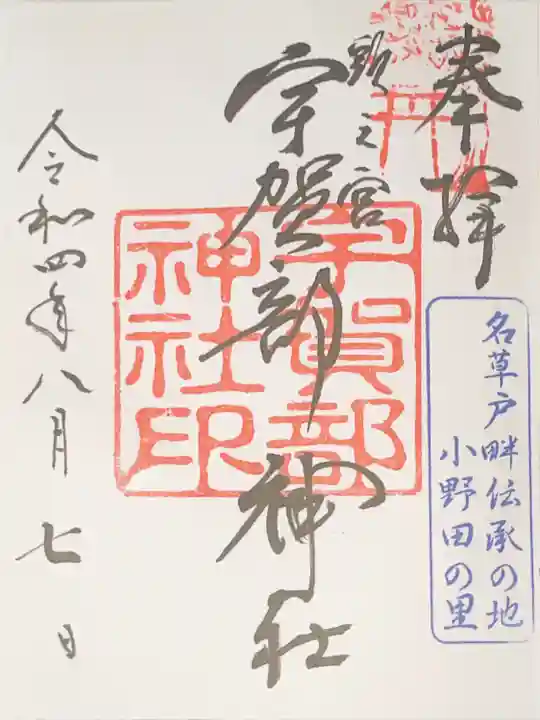 奉拝
頭之宮
宇賀部神社
宇賀部
神社印
令和四年八月七日
名草戸畔伝承の地
小野田の里